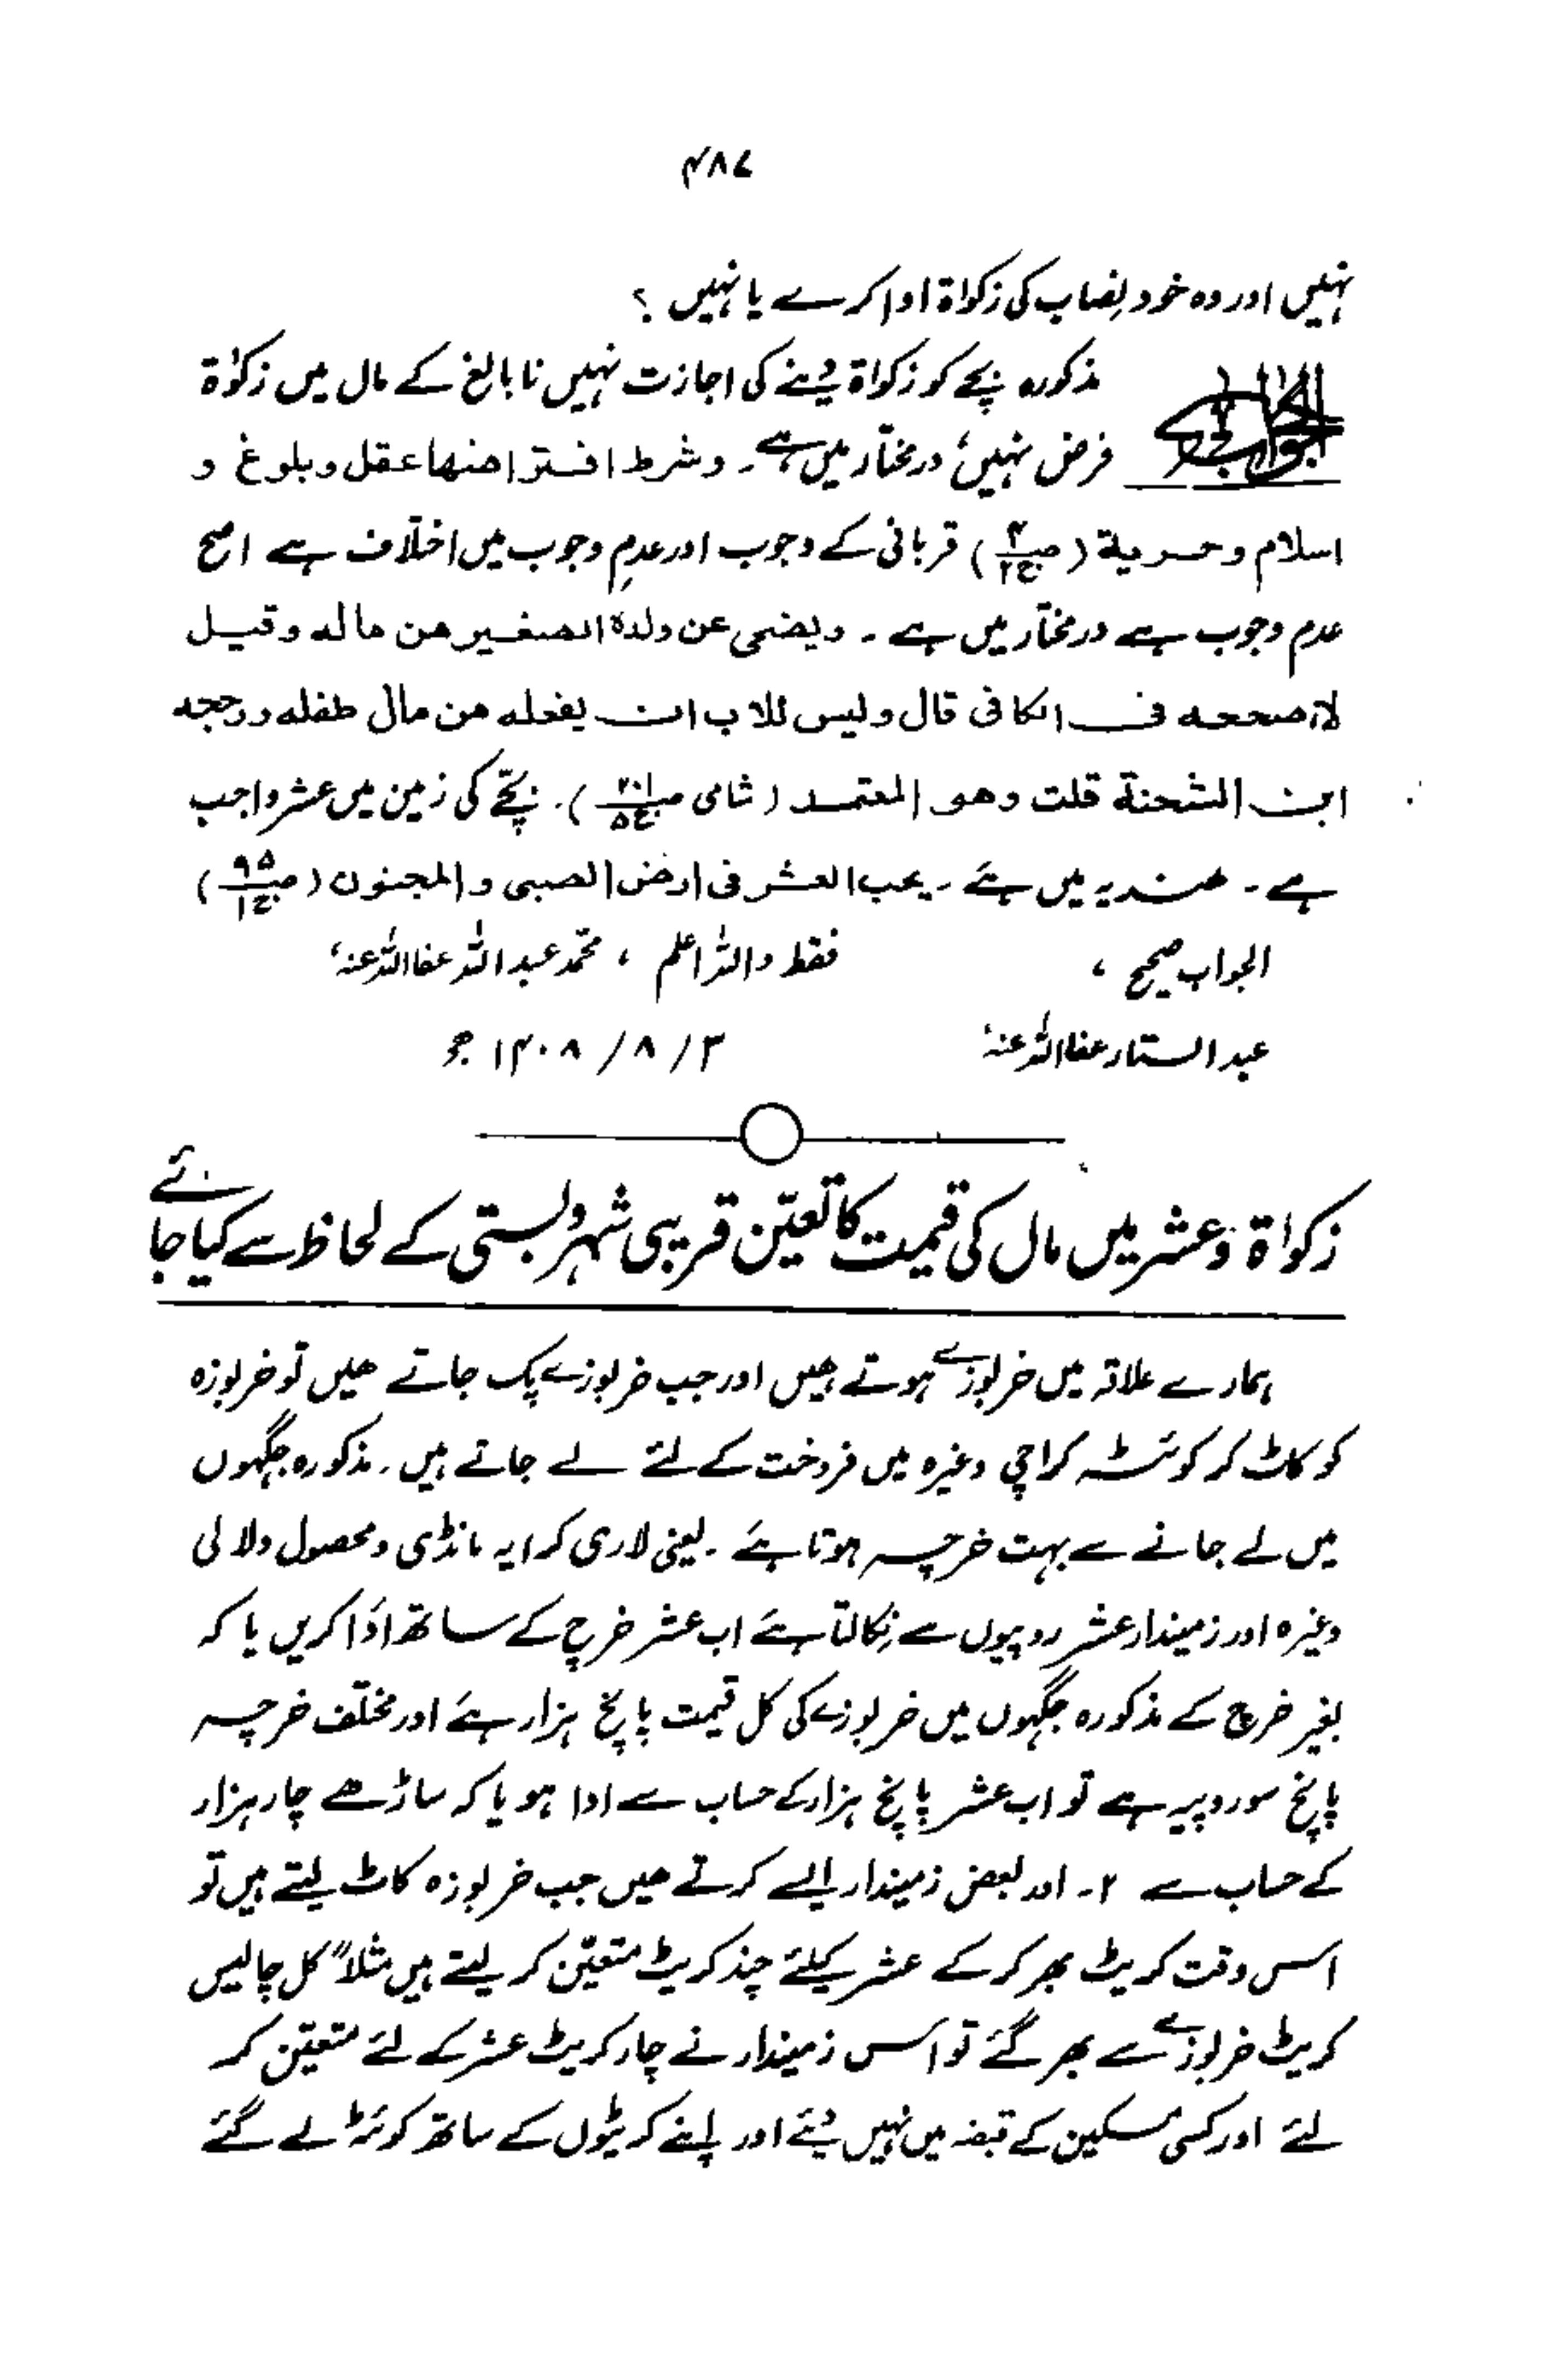 ۴۸۷
نہیں اور وہ خود نصاب کی زکواۃ ادا کرے یا نہیں ؟
الجواب مذکورہ بچے کو زکواۃ دینے کی اجازت نہیں نابالغ کے مال میں زکوٰۃ
فرض نہیں، درمختار میں ہے۔ وشرط افتراضها عقل وبلوغ و
اسلام وحرية (ص۴ ج۲) قربانی کے وجوب اور عدمِ وجوب میں اختلاف ہے اصح
عدم وجوب ہے درمختار میں ہے ۔ ویضحی عن ولدہ الصغیر من ماله وقیل
لا صححه فی الکافی قال ولیس للاب ان یفعله من مال طفله ورجحه
ابن الشحنة قلت وهو المعتمد (شامی ص۲۰۱ ج۵)۔ بچّے کی زمین میں عشر واجب
ہے ۔ ھندیہ میں ہے ۔ یجب العشر فی ارض الصبی والمجنون (ص۹۵ ج۱)
الجواب صحیح ، فقط واللہ اعلم ، محمّد عبداللہ عفااللہ عنہٗ
عبدالستار عفااللہ عنہٗ ۳/۸/۱۴۰۸ھ
زکواۃ وعشر میں مال کی قیمت کا تعیّن قریبی شہر و بستی کے لحاظ سے کیا جائے
ہمارے علاقہ میں خربوزے ہوتے ہیں اور جب خربوزے پک جاتے ہیں تو خربوزہ
کو کاٹ کر کوئٹہ کراچی وغیرہ میں فروخت کے لئے لے جاتے ہیں۔ مذکورہ جگہوں
میں لے جانے سے بہت خرچہ ہوتا ہے ۔ یعنی لاری کرایہ مانڈی ومحصول دلالی
وغیرہ اور زمیندار عشر روپیوں سے نکالتا ہے اب عشر خرچ کے ساتھ ادا کریں یا کہ
بغیر خرچ کے مذکورہ جگہوں میں خربوزے کی کل قیمت پانچ ہزار ہے اور مختلف خرچہ
پانچ سو روپیہ ہے تو اب عشر پانچ ہزار کے حساب سے ادا ہو یا کہ ساڑھے چار ہزار
کے حساب سے ۲۔ اور بعض زمیندار ایسے کرتے ہیں جب خربوزہ کاٹ لیتے ہیں تو
اس وقت کریٹ بھر کر کے عشر کیلئے چند کریٹ متعیّن کر لیتے ہیں مثلاً کل چالیس
کریٹ خربوزے سے بھر گئے تو اس زمیندار نے چار کریٹ عشر کے لئے متعیّن کر
لئے اور کسی مسکین کے قبضہ میں نہیں دیئے اور اپنے کریٹوں کے ساتھ کوئٹہ لے گئے